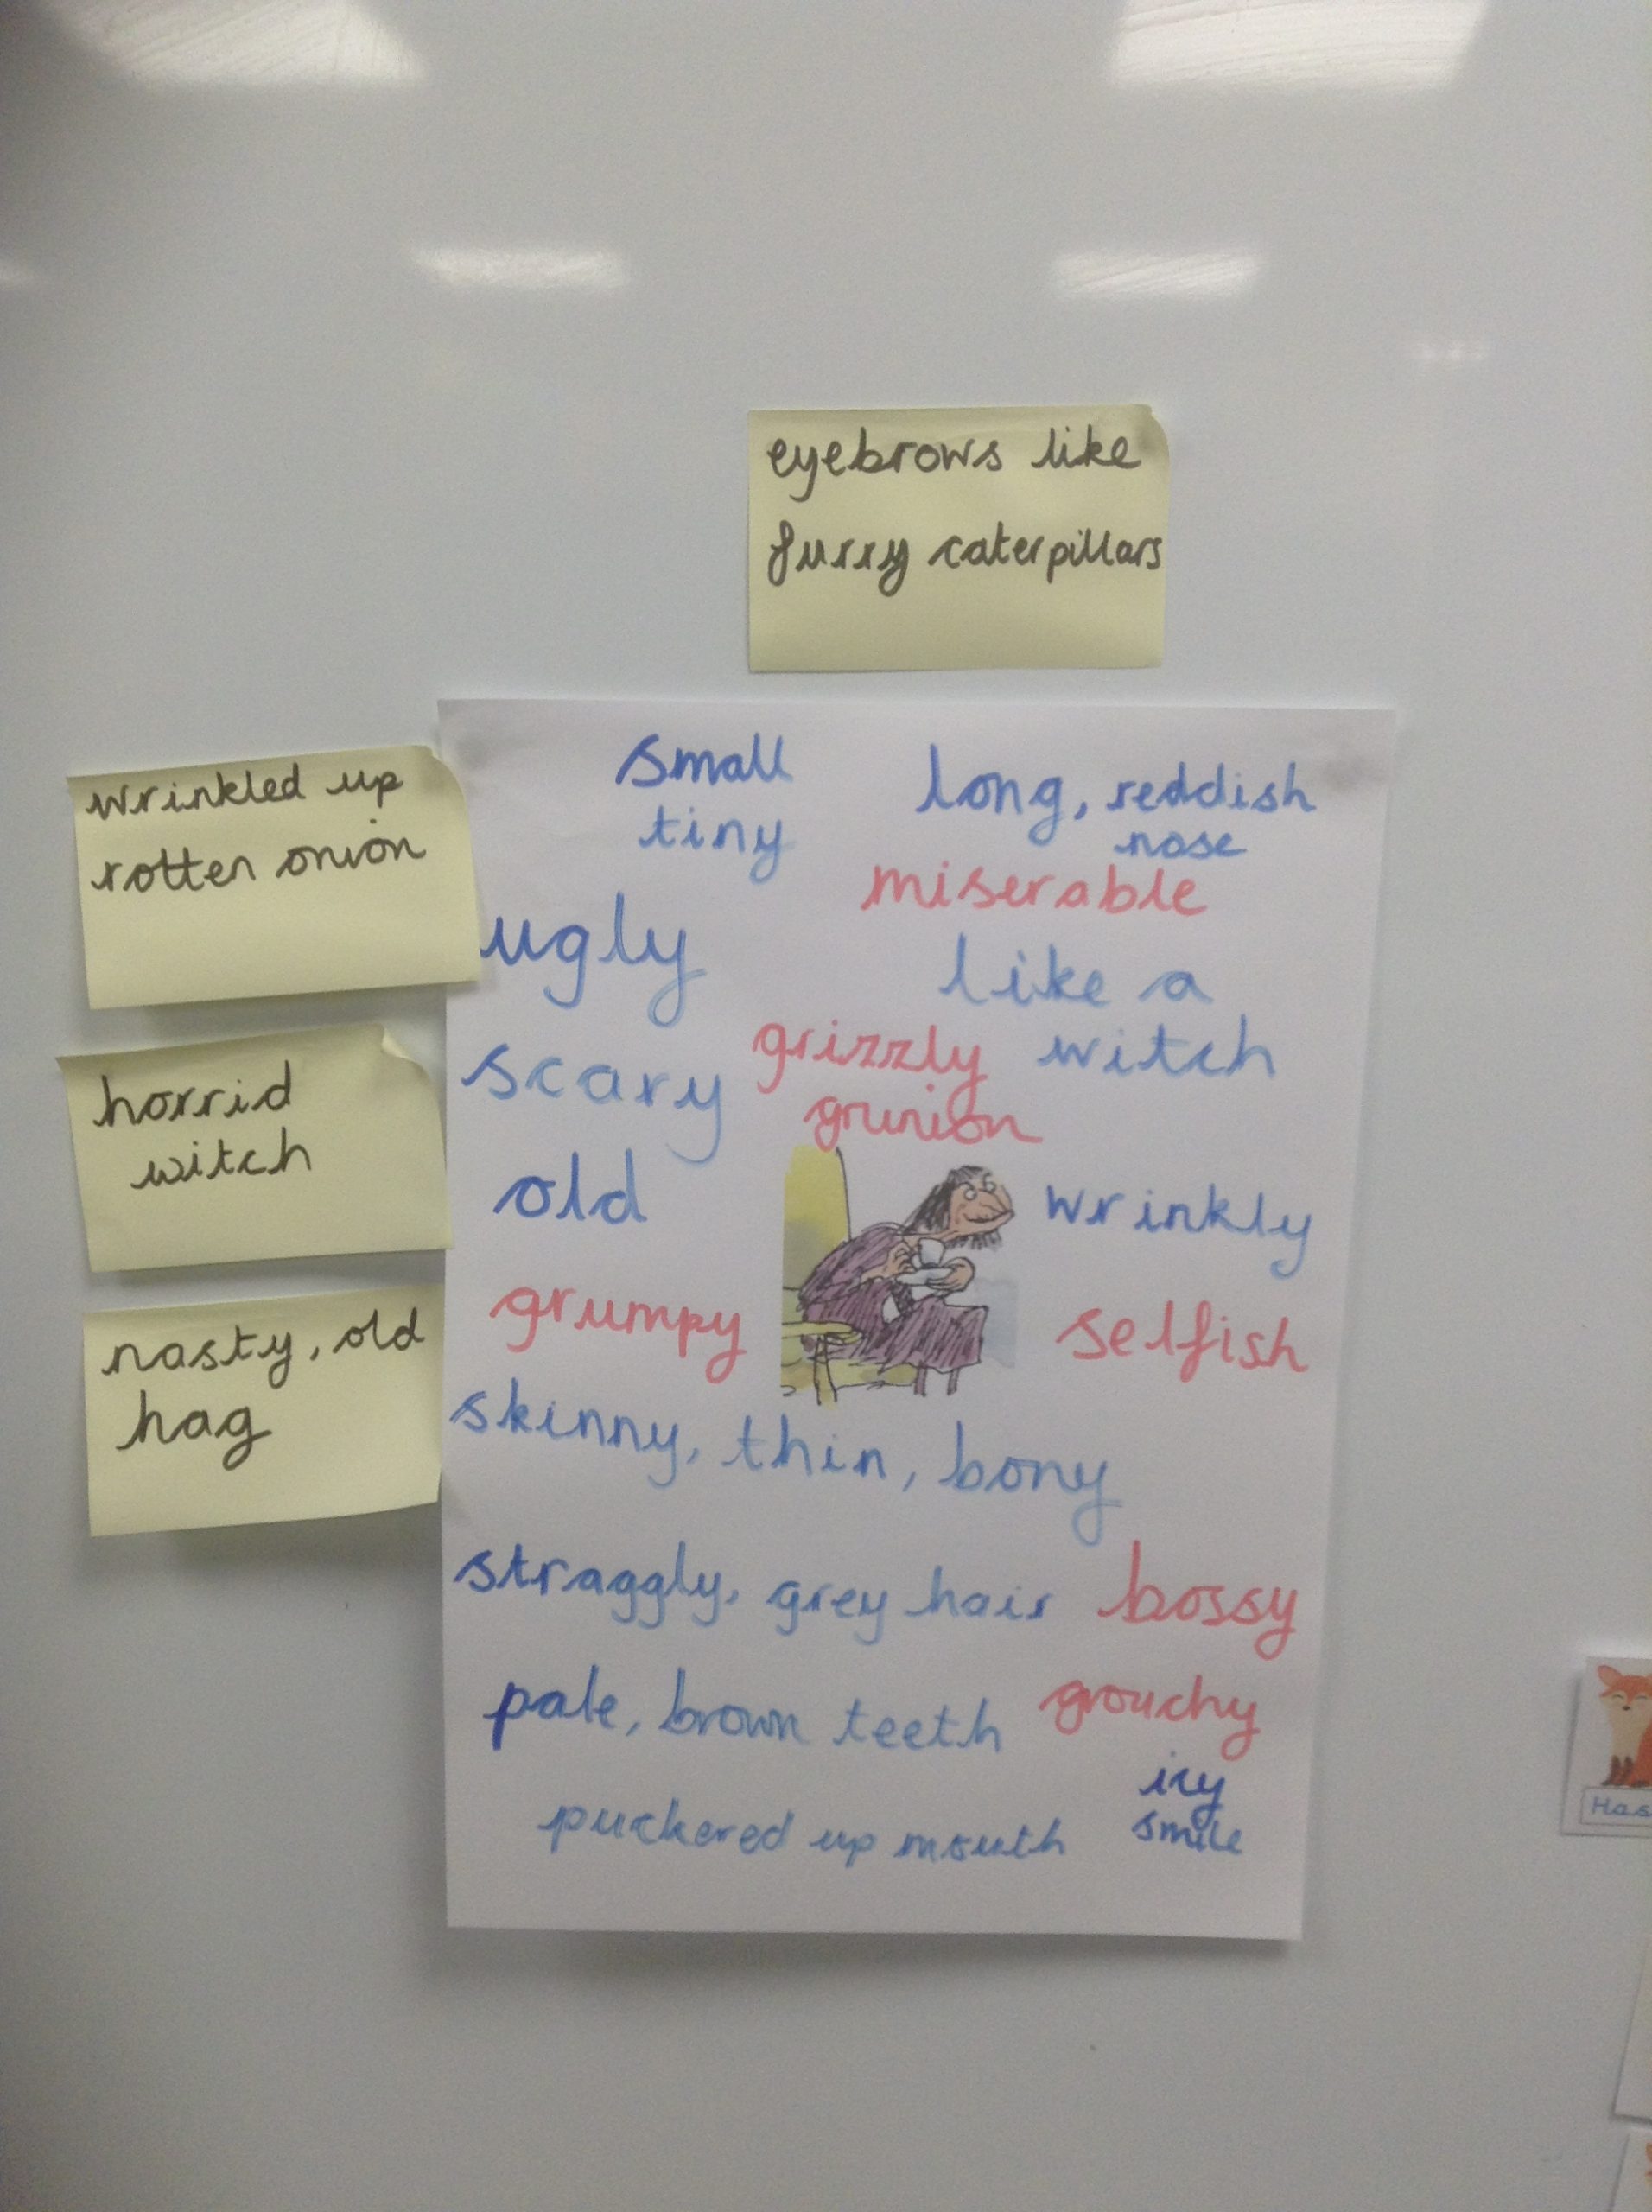 eyebrows like
furry caterpillars
wrinkled up
rotten onion
horrid
witch
nasty, old
hag
small
tiny
long, reddish
nose
miserable
ugly
like a
witch
scary
grizzly
grunion
old
wrinkly
grumpy
selfish
skinny, thin, bony
straggly, grey hair
bossy
pale, brown teeth
grouchy
icy
smile
puckered up mouth